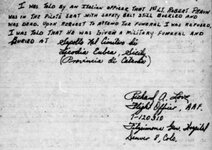 I was told by an Italian Officer that 1st Lt Robert
was in the Pilots seat with safety belt still buckled and
was dead. Upon request to attend the funeral I was refused.
I was told that he was given a military funeral and
buried at Cimitero di
Licodia Eubea, Sicily
(Provincia di Catania)
Richard A.
Flight Officer, A.A.F.
T-120510
Fitzsimons Gen. Hospital
Denver 8, Colo.